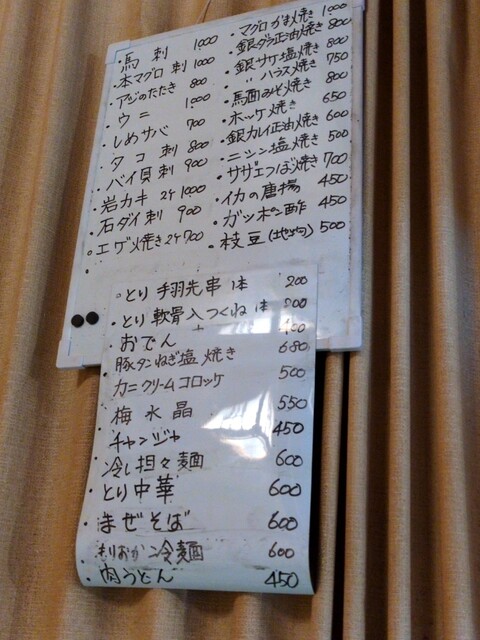 ・馬刺 1000
・本マグロ刺 1000
・アジのたたき 800
・ウニ 1000
・しめサバ 700
・タコ刺 800
・バイ貝刺 900
・岩カキ 2ケ 1000
・石ダイ刺 900
・エゲ焼き 2ケ 700
・マグロかま焼き 1000
・銀ダラ正油焼き 800
・銀サケ塩焼き 800
・〃 ハラス焼き 750
・馬面みそ焼き 800
・ホッケ焼き 650
・銀カレイ正油焼き 600
・ニシン塩焼き 500
・サザエつぼ焼き 700
・イカの唐揚 450
・ガツポン酢 450
・枝豆 500
・とり手羽先串 1本 200
・とり軟骨入つくね 1本 200
・おでん
豚タンねぎ塩焼き 680
カニクリームコロッケ 500
・梅水晶 550
・チャンジャ 450
・冷し担々麺 600
・とり中華 600
・まぜそば 600
・もりおか冷麺 600
・肉うどん 450